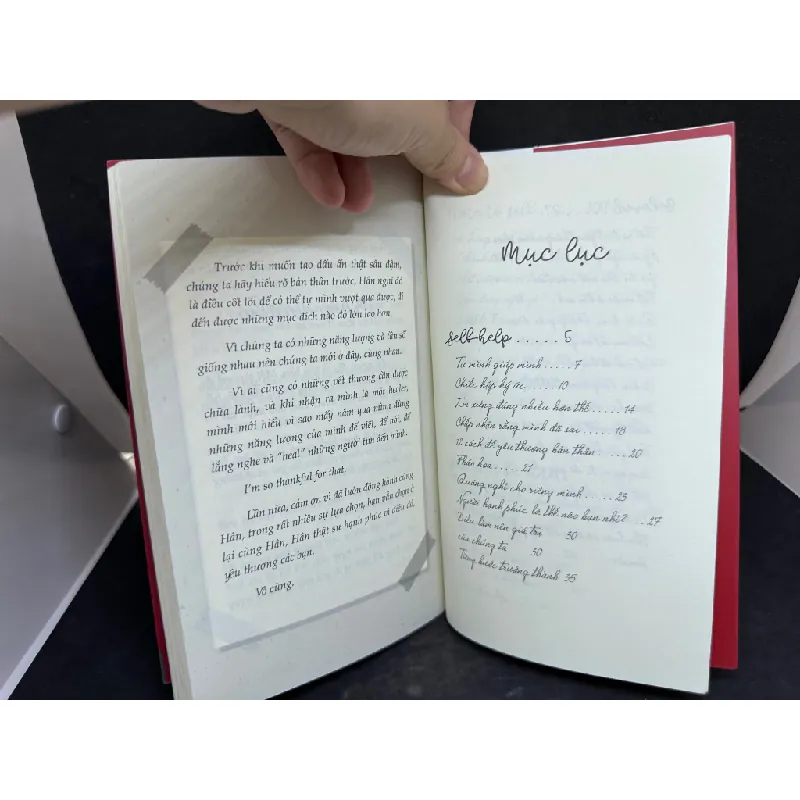 Trước khi muốn tạo dấu ấn thật sâu đậm,
chúng ta hãy hiểu rõ bản thân trước. Hân nghĩ đó
là điều cốt lõi để có thể tự mình vượt qua được, đi
đến được những mục đích nào đó lớn lao hơn.
Vì chúng ta có những năng lượng và tần số
giống nhau nên chúng ta mới ở đây, cùng nhau.
Vì ai cũng có những vết thương cần được
chữa lành, và khi nhận ra mình là một healer,
mình mới hiểu vì sao mấy năm qua mình dùng
những năng lượng của mình để viết, để nói, để
lắng nghe và "heal" những người tìm đến mình.
I'm so thankful for that.
Lần nữa, cảm ơn vì đã luôn đồng hành cùng
Hân, trong rất nhiều sự lựa chọn, bạn vẫn chọn ở
lại cùng Hân, Hân thật sự hạnh phúc vì điều đó,
yêu thương các bạn.
Vô cùng.
Mục lục
self-help ..... 5
Tự mình giúp mình ..... 7
Chiếc hộp ký ức ... 10
Em xứng đáng nhiều hơn thế ..... 14
Chấp nhận rằng mình đã sai ..... 18
12 cách để yêu thương bản thân ..... 20
Pháo hoa ..... 21
Quãng nghỉ cho riêng mình ..... 23
Người hạnh phúc là thế nào bạn nhỉ? ... 27
Điều làm nên giá trị 30
của chúng ta 30
Từng bước trưởng thành 35